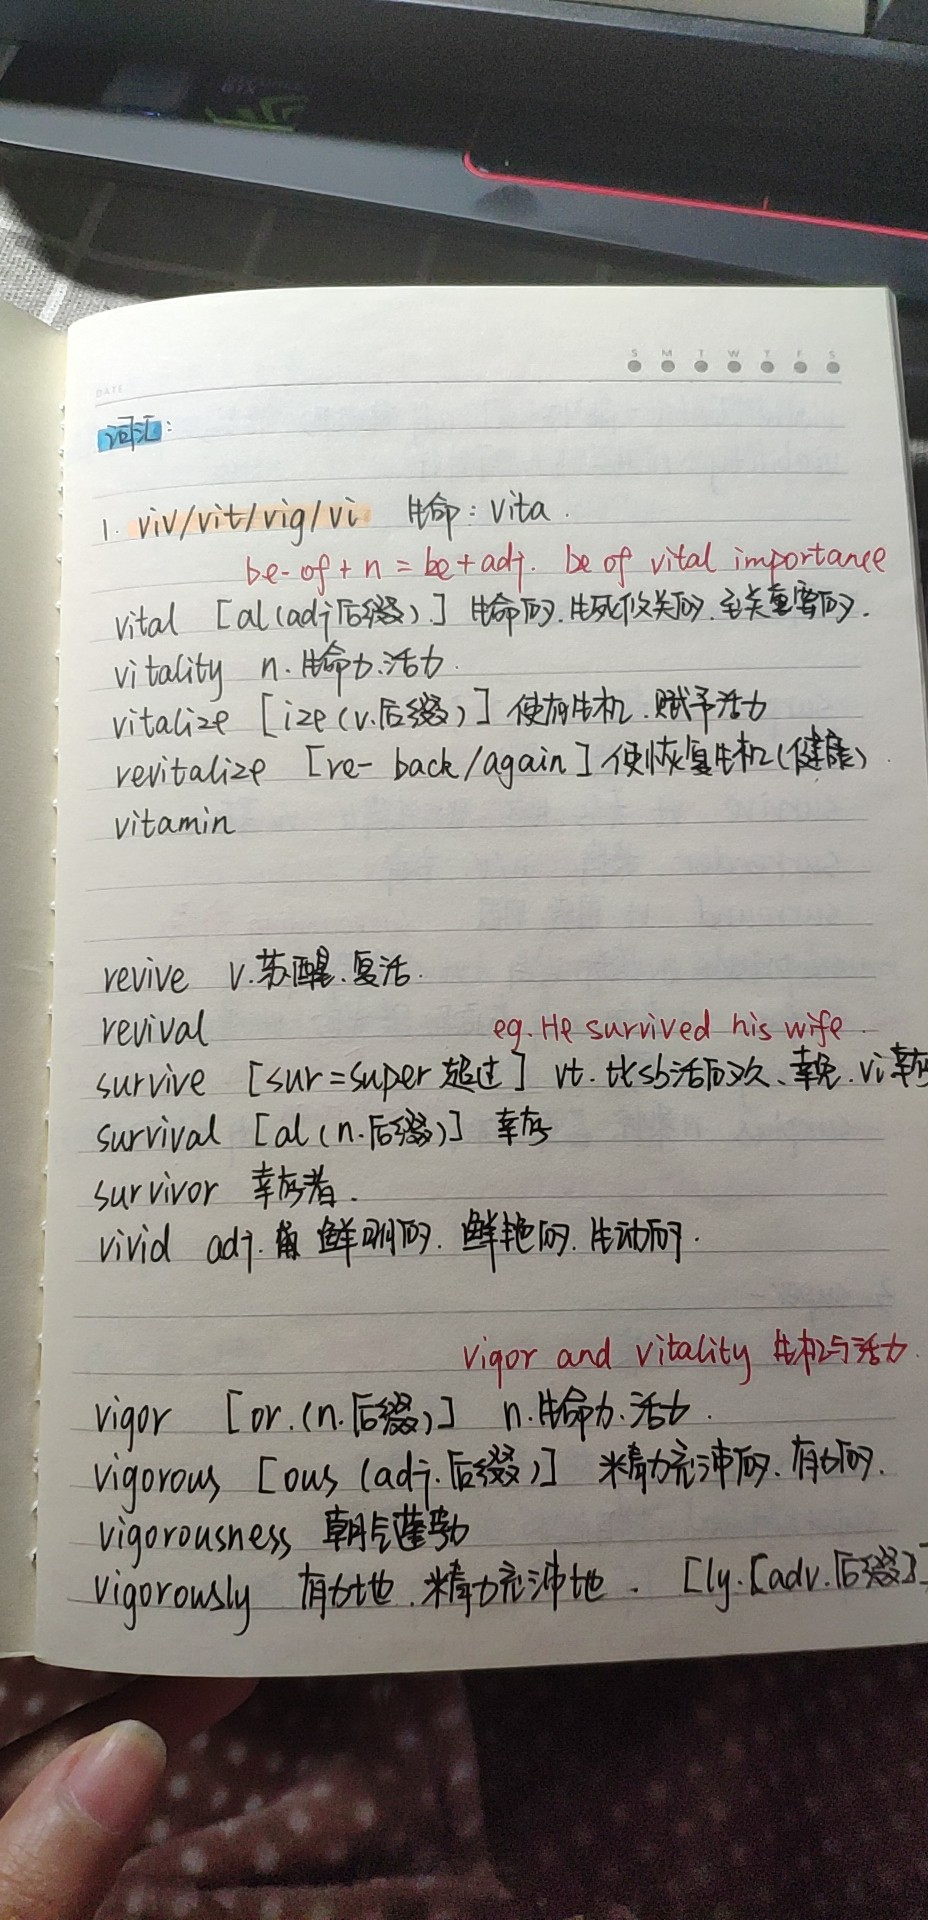 S M T W T F S
DATE
词汇:
1. viv/vit/vig/vi 生命: vita.
be-of + n = be + adj. be of vital importance
vital [al(adj后缀).] 生命的.生死攸关的.至关重要的.
vitality n.生命力.活力.
vitalize [ize(v.后缀)] 使有生机.赋予活力
revitalize [re- back/again] 使恢复生机(健康).
vitamin
revive v.苏醒.复活.
revival
eg. He survived his wife.
survive [sur=super 超过] vt. 比sb活的久、幸免. vi幸存
survival [al(n.后缀)] 幸存
survivor 幸存者.
vivid adj. 鲜明的.鲜艳的.生动的.
vigor and vitality 生机与活力.
vigor [or.(n.后缀)] n.生命力.活力.
vigorous [ous (adj.后缀)] 精力充沛的.有力的.
vigorousness 朝气蓬勃
vigorously 有力地.精力充沛地. [ly.[adv.后缀]]